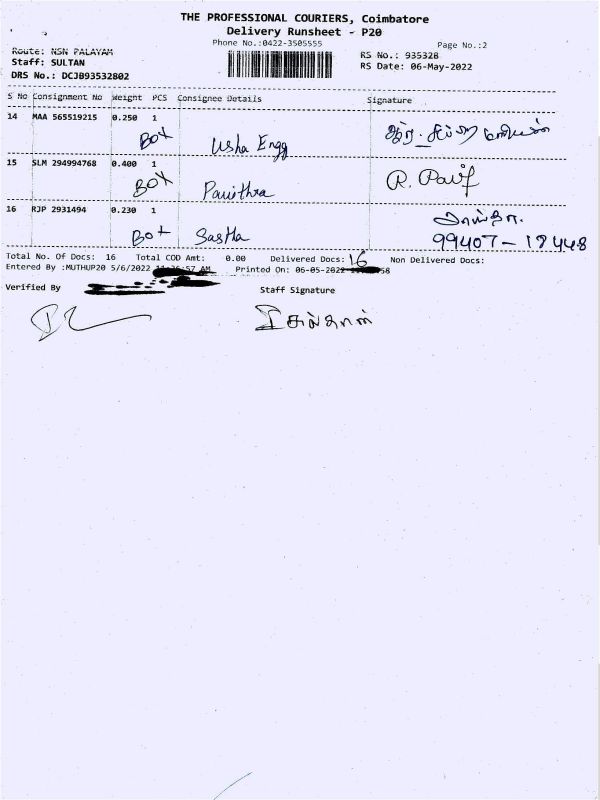 THE PROFESSIONAL COURIERS, Coimbatore
Delivery Runsheet - P20
Phone No.:0422-3505555
Page No.:2
Route: NSN PALAYAM
RS No.: 935328
Staff: SULTAN
RS Date: 06-May-2022
DRS No.: DCJB93532802
S No Consignment No Weight PCS Consignee Details Signature
14 MAA 565519215 0.250 1
BOX Usha Engg
15 SLM 294994768 0.400 1
BOX Pavithra R. Pavi
16 RJP 2931494 0.230 1
Box Sastha 99407-18448
Total No. Of Docs: 16 Total COD Amt: 0.00 Delivered Docs: 16 Non Delivered Docs:
Entered By :MUTHUP20 5/6/2022 :57 AM Printed On: 06-05-2022 58
Verified By Staff Signature